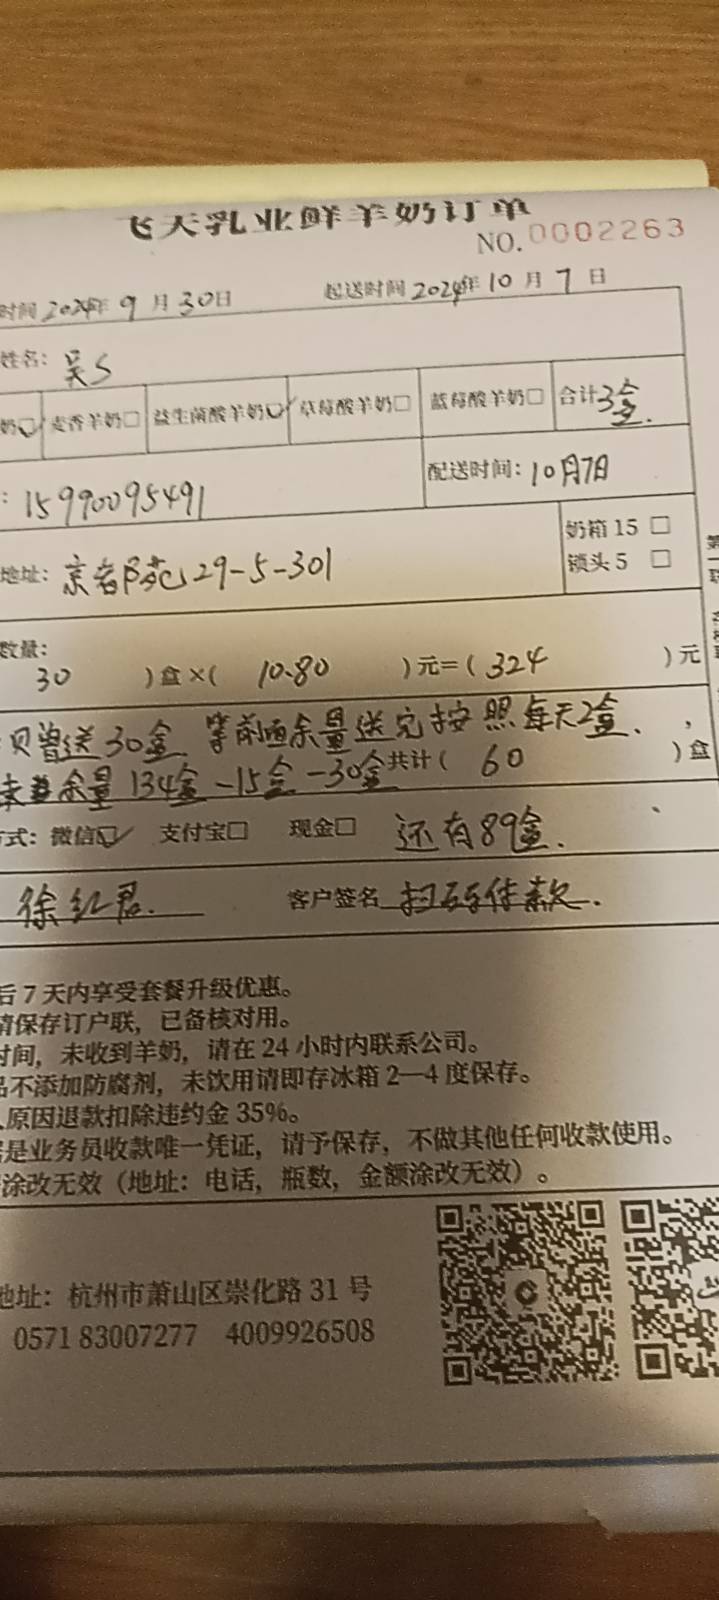 飞天乳业鲜羊奶订单
NO.0002263
时间 2024年 9 月 30日 起送时间 2024年 10 月 7 日
姓名: 吴S
奶☑ 麦香羊奶□ 益生菌酸羊奶☑ 草莓酸羊奶□ 蓝莓酸羊奶□ 合计3盒.
: 15990095491 配送时间: 10月7日
奶箱 15 □
地址: 29-5-301 锁头 5 □
数量:
30 ）盒 ×( 10.80 ）元=( 324 ）元
曾送30盒. 等前面余量送完按照每天2盒.
余量134盒-15盒-30盒 共计( 60 ）盒
方式: 微信☑ 支付宝□ 现金□ 还有89盒.
徐红君. 客户签名 扫码付款.
后 7 天内享受套餐升级优惠。
请保存订户联，已备核对用。
时间，未收到羊奶，请在 24 小时内联系公司。
品不添加防腐剂，未饮用请即存冰箱 2—4 度保存。
原因退款扣除违约金 35%。
是业务员收款唯一凭证，请予保存，不做其他任何收款使用。
涂改无效（地址：电话，瓶数，金额涂改无效）。
地址：杭州市萧山区崇化路 31 号
0571 83007277 4009926508